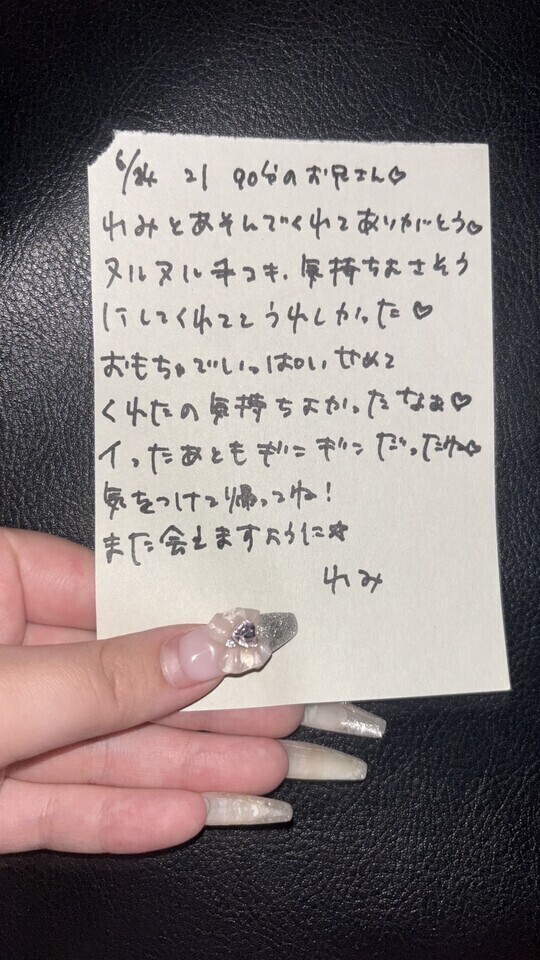 6/24 21 90分のお兄さん♡
れみとあそんでくれてありがとう♡
ヌルヌル手コキ、気持ちよさそう
にしてくれててうれしかった♡
おもちゃでいっぱいせめて
くれたの気持ちよかったなぁ♡
イったあともギンギンだったね♡
気をつけて帰ってね！
また会えますように☆
れみ